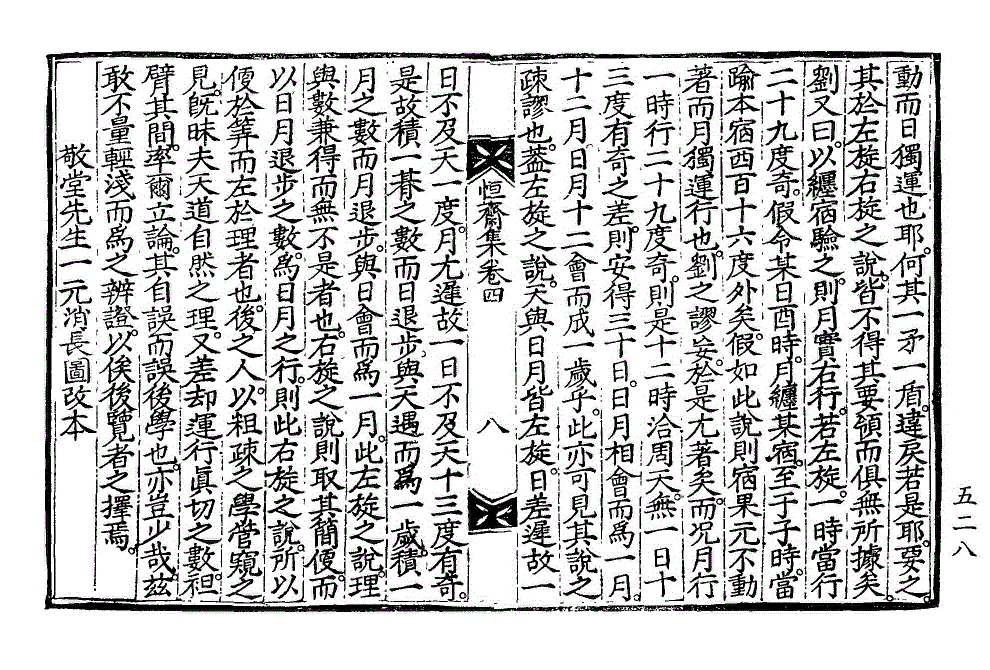 動而日獨運也耶。何其一矛一盾。違戾若是耶。要之
其於左旋右旋之說。皆不得其要領而俱無所據矣。
劉又曰。以纏宿驗之。則月實右行。若左旋。一時當行
二十九度奇。假令某日酉時。月纏某宿。至于子時。當
踰本宿西百十六度外矣。假如此說則宿果元不動
著。而月獨運行也。劉之謬妄。於是尤著矣。而况月行
一時行二十九度奇。則是十二時洽周天。無一日十
三度有奇之差。則安得三十日。日月相會而爲一月
十二月。日月十二會而成一歲乎。此亦可見其說之
疎謬也。盖左旋之說。天與日月皆左旋。日差遲故一
恒齋集卷四
八
日不及天一度。月尤遲故一日不及天十三度有奇。
是故積一朞之數而日退步。與天遇而爲一歲。積一
月之數而月退步。與日會而爲一月。此左旋之說。理
與數兼得而無不是者也。右旋之說則取其簡便。而
以日月退步之數。爲日月之行。則此右旋之說。所以
便於筭而左於理者也。後之人。以粗疎之學。管窺之
見。旣昧夫天道自然之理。又差却運行眞切之數。袒
臂其間。率爾立論。其自誤而誤後學也。亦豈少哉。玆
敢不量輕淺而爲之辨證。以俟後覽者之擇焉。
敬堂先生一元消長圖改本
五二八